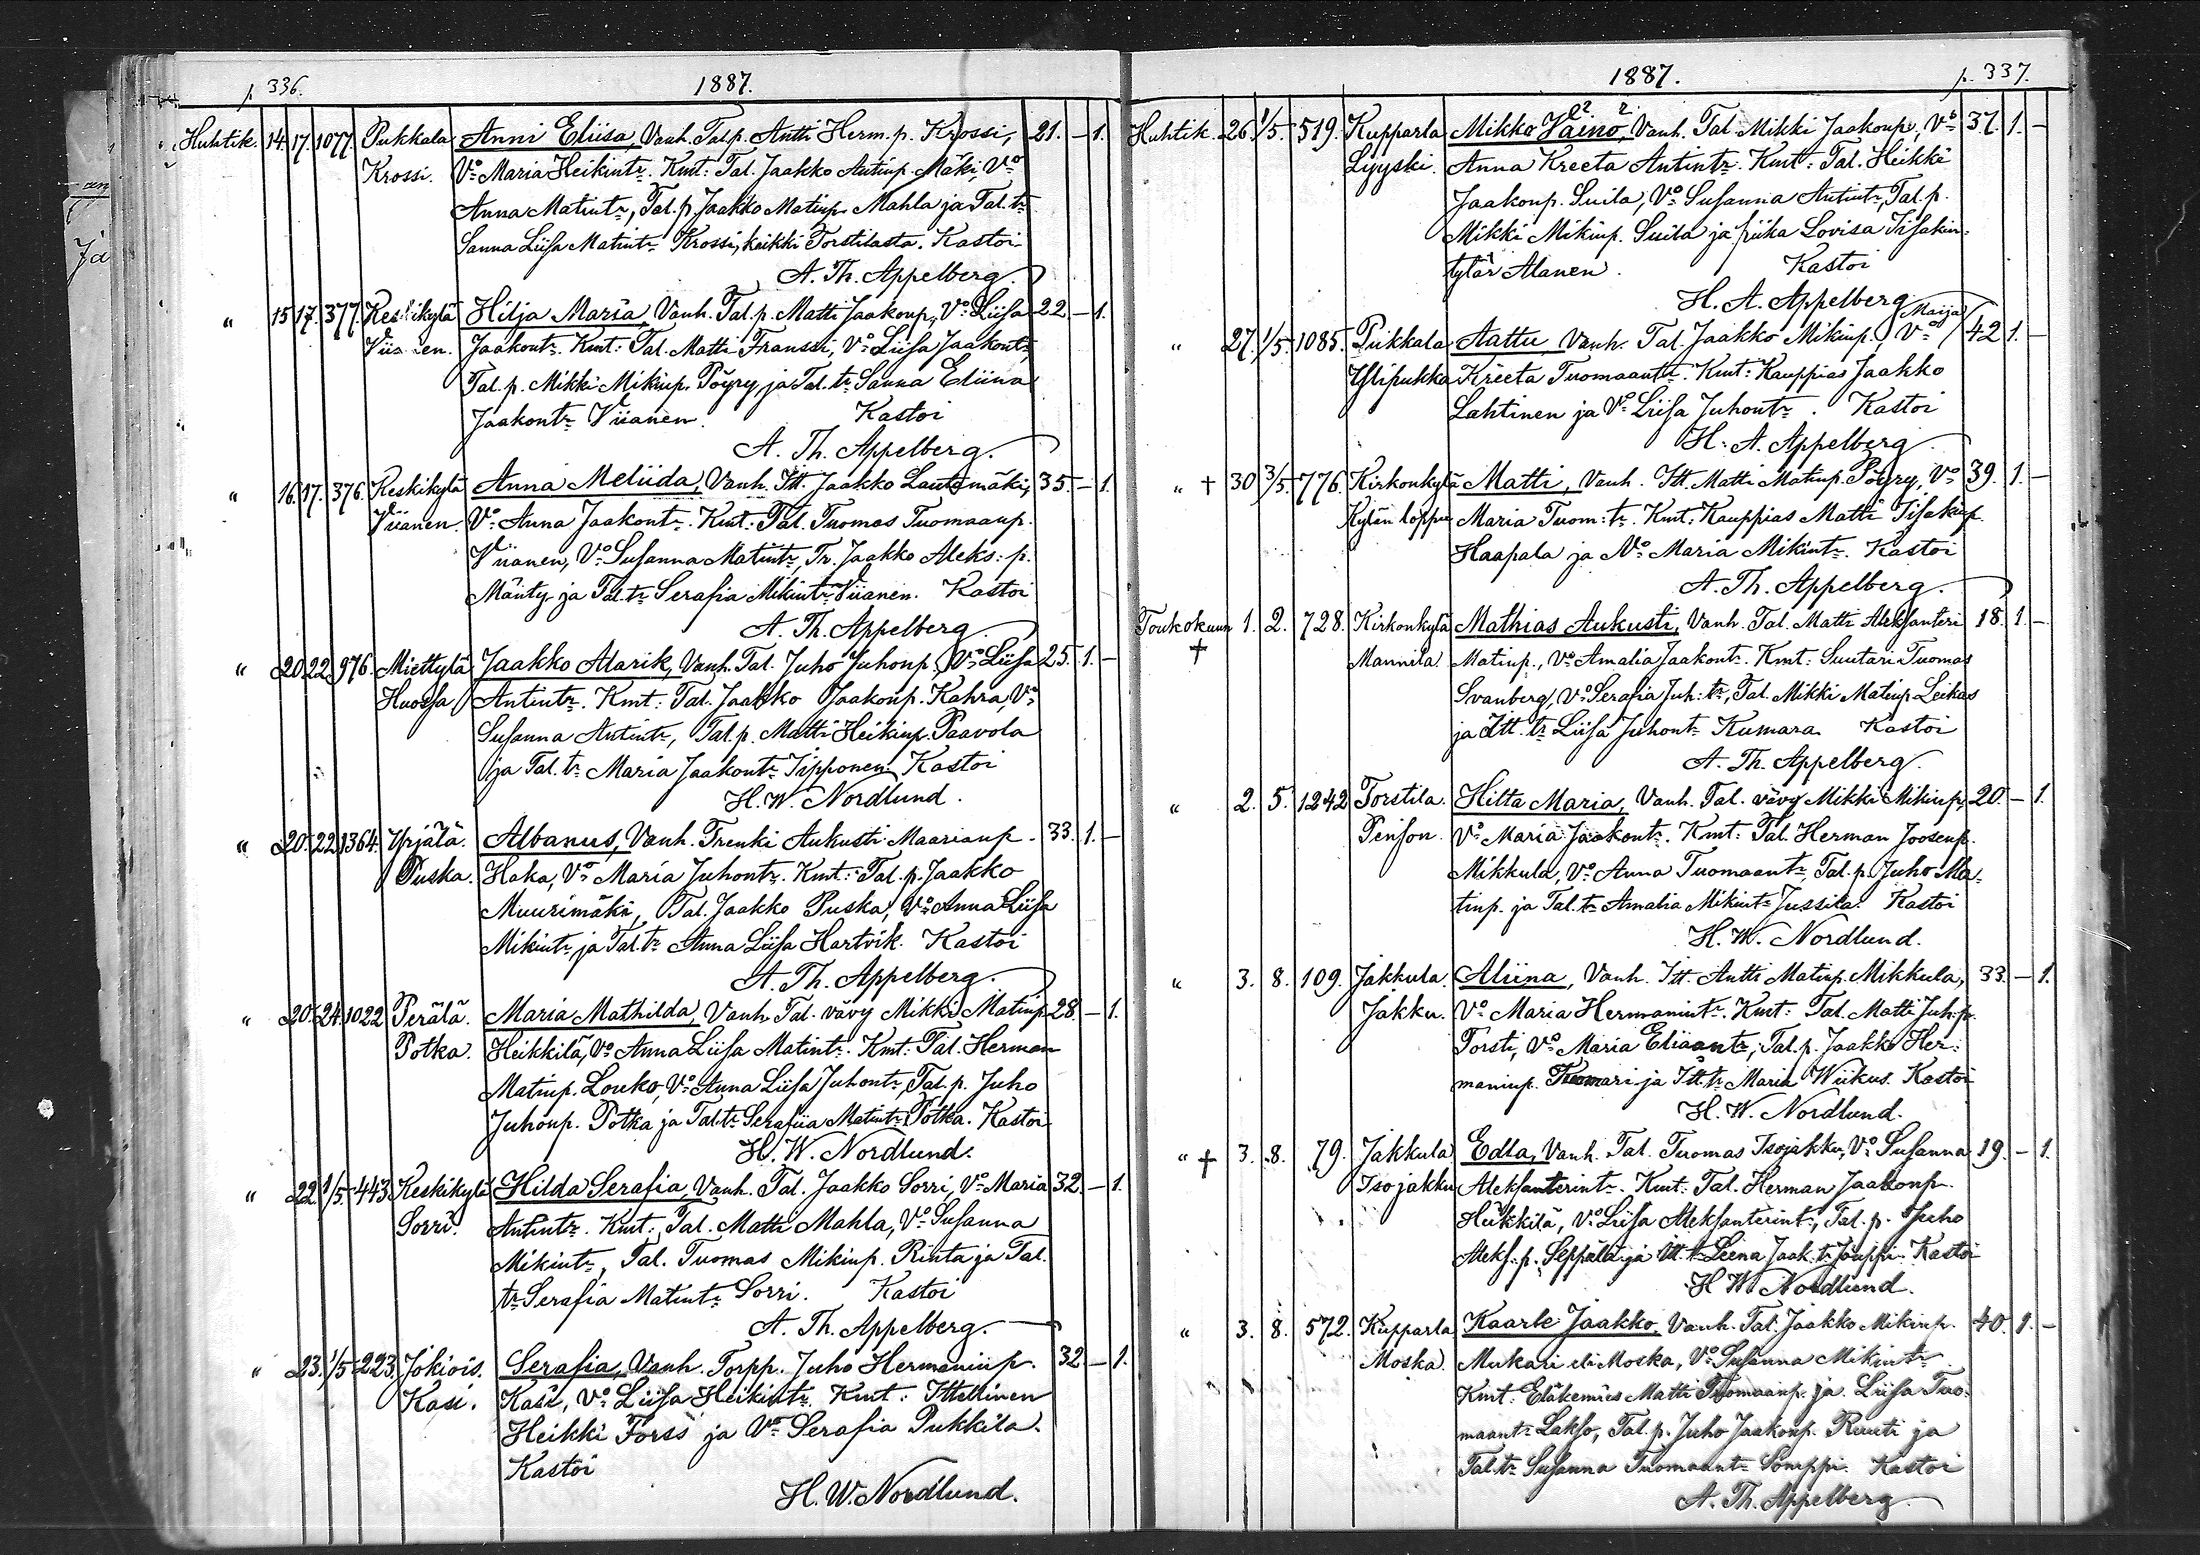 p. 336. 1887.
Huhtik. 14. 17. 1077. Pukkala Anni Eliisa, Vanh. Tal.p. Antti Herm. p. Krossi, 21. – 1.
Krossi. Vo Maria Heikintr. Kmt: Tal. Jaakko Antinp. Mäki, Vo
Anna Matintr, Tal. p. Jaakko Matinp. Mahla ja Tal. tr
Sanna Liisa Matintr Krossi, kaikki Torstilasta. Kastoi
A. Th. Appelberg.
" 15 17. 377. Keskikylä Hilja Maria, Vanh. Tal. p. Matti Jaakonp, Vo Liisa 22. – 1.
Jaakontr. Kmt: Tal. Matti Franssi, Vo Liisa Jaakontr
Tal. p. Mikki Mikinp. Pöyry ja Tal. tr Sanna Eliina
Jaakontr Viianen. Kastoi
A. Th. Appelberg.
" 16. 17. 376. Keskikylä Anna Meliida, Vanh. Itt. Jaakko Lautamäki, 35. – 1.
Viianen. Vo Anna Jaakontr. Kmt: Tal. Tuomas Tuomaanp.
Viianen, Vo Susanna Matintr, Tr. Jaakko Aleks: p.
Mänty ja Tal. tr Serafia Mikintr Viianen. Kastoi
A. Th. Appelberg.
" 20. 22. 976. Miettylä Jaakko Alarik, Vanh. Tal. Juho Juhonp, Vo Liisa 25. 1. –
Huossa Antintr. Kmt: Tal. Jaakko Jaakonp. Kahra, Vo
Susanna Antintr, Tal. p. Matti Heikinp. Paavola
ja Tal. tr Maria Jaakontr Iipponen. Kastoi
H. W. Nordlund.
" 20. 22. 1364. Yrjälä. Albanus, Vanh. Trenki Aukusti Maarianp. 33. 1. –
Puska. Haka, Vo Maria Juhontr. Kmt: Tal. p. Jaakko
Muurimäki, Tal. Jaakko Puska, Vo Anna Liisa
Mikintr ja Tal. tr Anna Liisa Hartvik. Kastoi
A. Th. Appelberg.
" 20. 24. 1022 Perälä. Maria Mathilda, Vanh. Tal. vävy Mikki Matinp 28. – 1.
Potka. Heikkilä, Vo Anna Liisa Matintr. Kmt: Tal. Herman
Matinp. Louko, Vo Anna Liisa Juhontr, Tal. p. Juho
Juhonp. Potka ja Tal. tr Serafiia Matintr Potka. Kastoi
H. W. Nordlund.
" 22. 1/5. 443. Keskikylä Hilda Serafia, Vanh. Tal. Jaakko Sorri, Vo Maria 32. – 1.
Sorri. Antintr. Kmt: Tal. Matti Mahla, Vo Susanna
Mikintr, Tal. Tuomas Mikinp. Rinta ja Tal.
tr Serafia Matintr Sorri. Kastoi
A. Th. Appelberg.
" 23. 1/5. 223. Jokiois. Serafia, Vanh. Torpp. Juho Hermaninp. 32. – 1.
Kasi. Kasi, Vo Liisa Heikintr. Kmt: Ittellinen
Heikki Forss ja Vo Serafia Pukkila.
Kastoi
H. W. Nordlund.
1887. p. 337.
Huhtik. 26. 1/5. 519. Kupparla Mikko Väinö, Vanh. Tal. Mikki Jaakonp, Vo 37. 1. –
Lyyski. Anna Kreeta Antintr. Kmt: Tal. Heikki
Jaakonp. Suila, Vo Susanna Antintr, Tal. p.
Mikki Mikinp. Suila ja piika Lovisa Iisakin-
tytär Alanen. Kastoi
H. A. Appelberg.
Maija
" 27. 1/5. 1085. Pukkala Aattu, Vanh. Tal. Jaakko Mikinp., Vo 42 1. –
Ylipukka Kreeta Tuomaantr. Kmt: Kauppias Jaakko
Lahtinen ja Vo Liisa Juhontr. Kastoi
H. A. Appelberg.
" † 30 3/5. 776. Kirkonkylä Matti, Vanh. Itt. Matti Matinp. Pöyry, Vo 39. 1. –
Kylän loppu Maria Tuom: tr. Kmt: Kauppias Matti Iisakinp.
Haapala ja Vo Maria Mikintr. Kastoi
A. Th. Appelberg.
Toukokuun 1. 2. 728. Kirkonkylä Mathias Aukusti, Vanh. Tal. Matti Aleksanteri 18. 1. –
† Mannila. Matinp., Vo Amalia Jaakontr. Kmt: Suutari Tuomas
Svanberg, Vo Serafia Juh: tr, Tal. Mikki Matinp Leikas
ja Itt. tr Liisa Juhontr Kumara. Kastoi
A. Th. Appelberg.
" 2. 5. 1242 Torstila. Hilta Maria, Vanh. Tal. vävy Mikki Mikinp, 20. – 1.
Penson. Vo Maria Jaakontr. Kmt: Tal. Herman Joosenp.
Mikkula, Vo Anna Tuomaantr, Tal. p. Juho Ma-
tinp. ja Tal. tr Amalia Mikintr Jussila. Kastoi
H. W. Nordlund.
" 3. 8. 109. Jakkula. Aliina, Vanh. Itt. Antti Matinp. Mikkula, 33. – 1.
Jakku. Vo Maria Hermanintr. Kmt: Tal. Matti Juh. p.
Torsti, Vo Maria Eliaantr, Tal. p. Jaakko Her-
maninp. Tuomari ja Itt. tr Maria Wiikus. Kastoi
H. W. Nordlund.
" † 3. 8. 79. Jakkula Edla, Vanh. Tal. Tuomas Isojakku, Vo Susanna 19. – 1.
Isojakku Aleksanterintr. Kmt: Tal. Herman Jaakonp.
Heikkilä, Vo Liisa Aleksanterintr, Tal. p. Juho
Aleks. p. Seppälä ja Itt. tr Leena Jaak. tr Jouppi. Kastoi
H. W. Nordlund.
" 3. 8. 572. Kupparla Kaarle Jaakko, Vanh. Tal. Jaakko Mikinp. 40. 1. –
Moska. Mukari eli Moska, Vo Susanna Mikintr
Kmt: Eläkemies Matti Tuomaanp. ja Liisa Tuo-
maantr Lakso, Tal. p. Juho Jaakonp. Ruuti ja
Tal. tr Susanna Tuomaantr Somppi. Kastoi
A. Th. Appelberg.